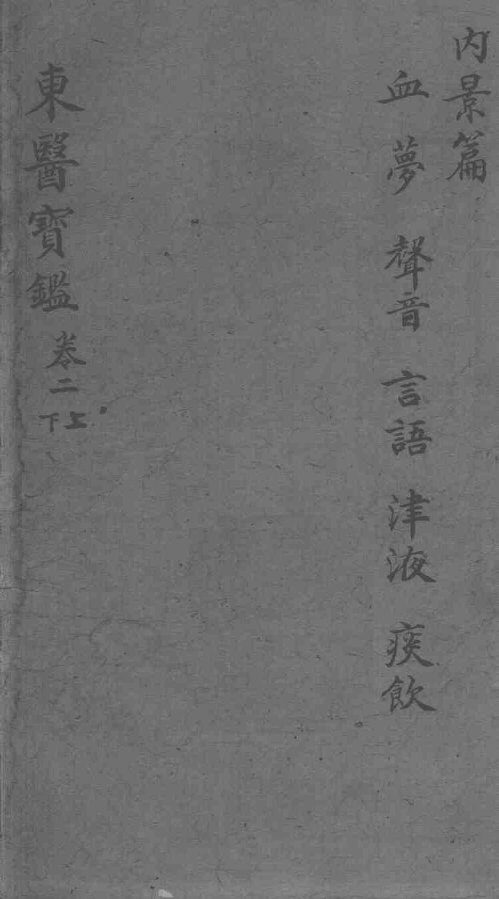 內景篇
血 夢 聲音 言語 津液 痰飮
東醫寶鑑 卷二 上下